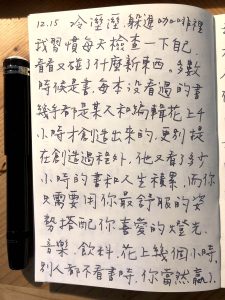 12.15 冷溼溼 躲進咖啡裡
我習慣每天檢查一下自己
看看又碰了什麼新東西，多數
時候是書，每本沒看過的書
幾乎都是某人和編輯花上千
小時才創造出來的，更別提
在創造過程外，他又看了多少
小時的書和人生積累，而你
只需要用你最舒服的姿
勢搭配你喜愛的燈光、
音樂、飲料，花上幾個小時，
別人都不看書時，你當然贏了。